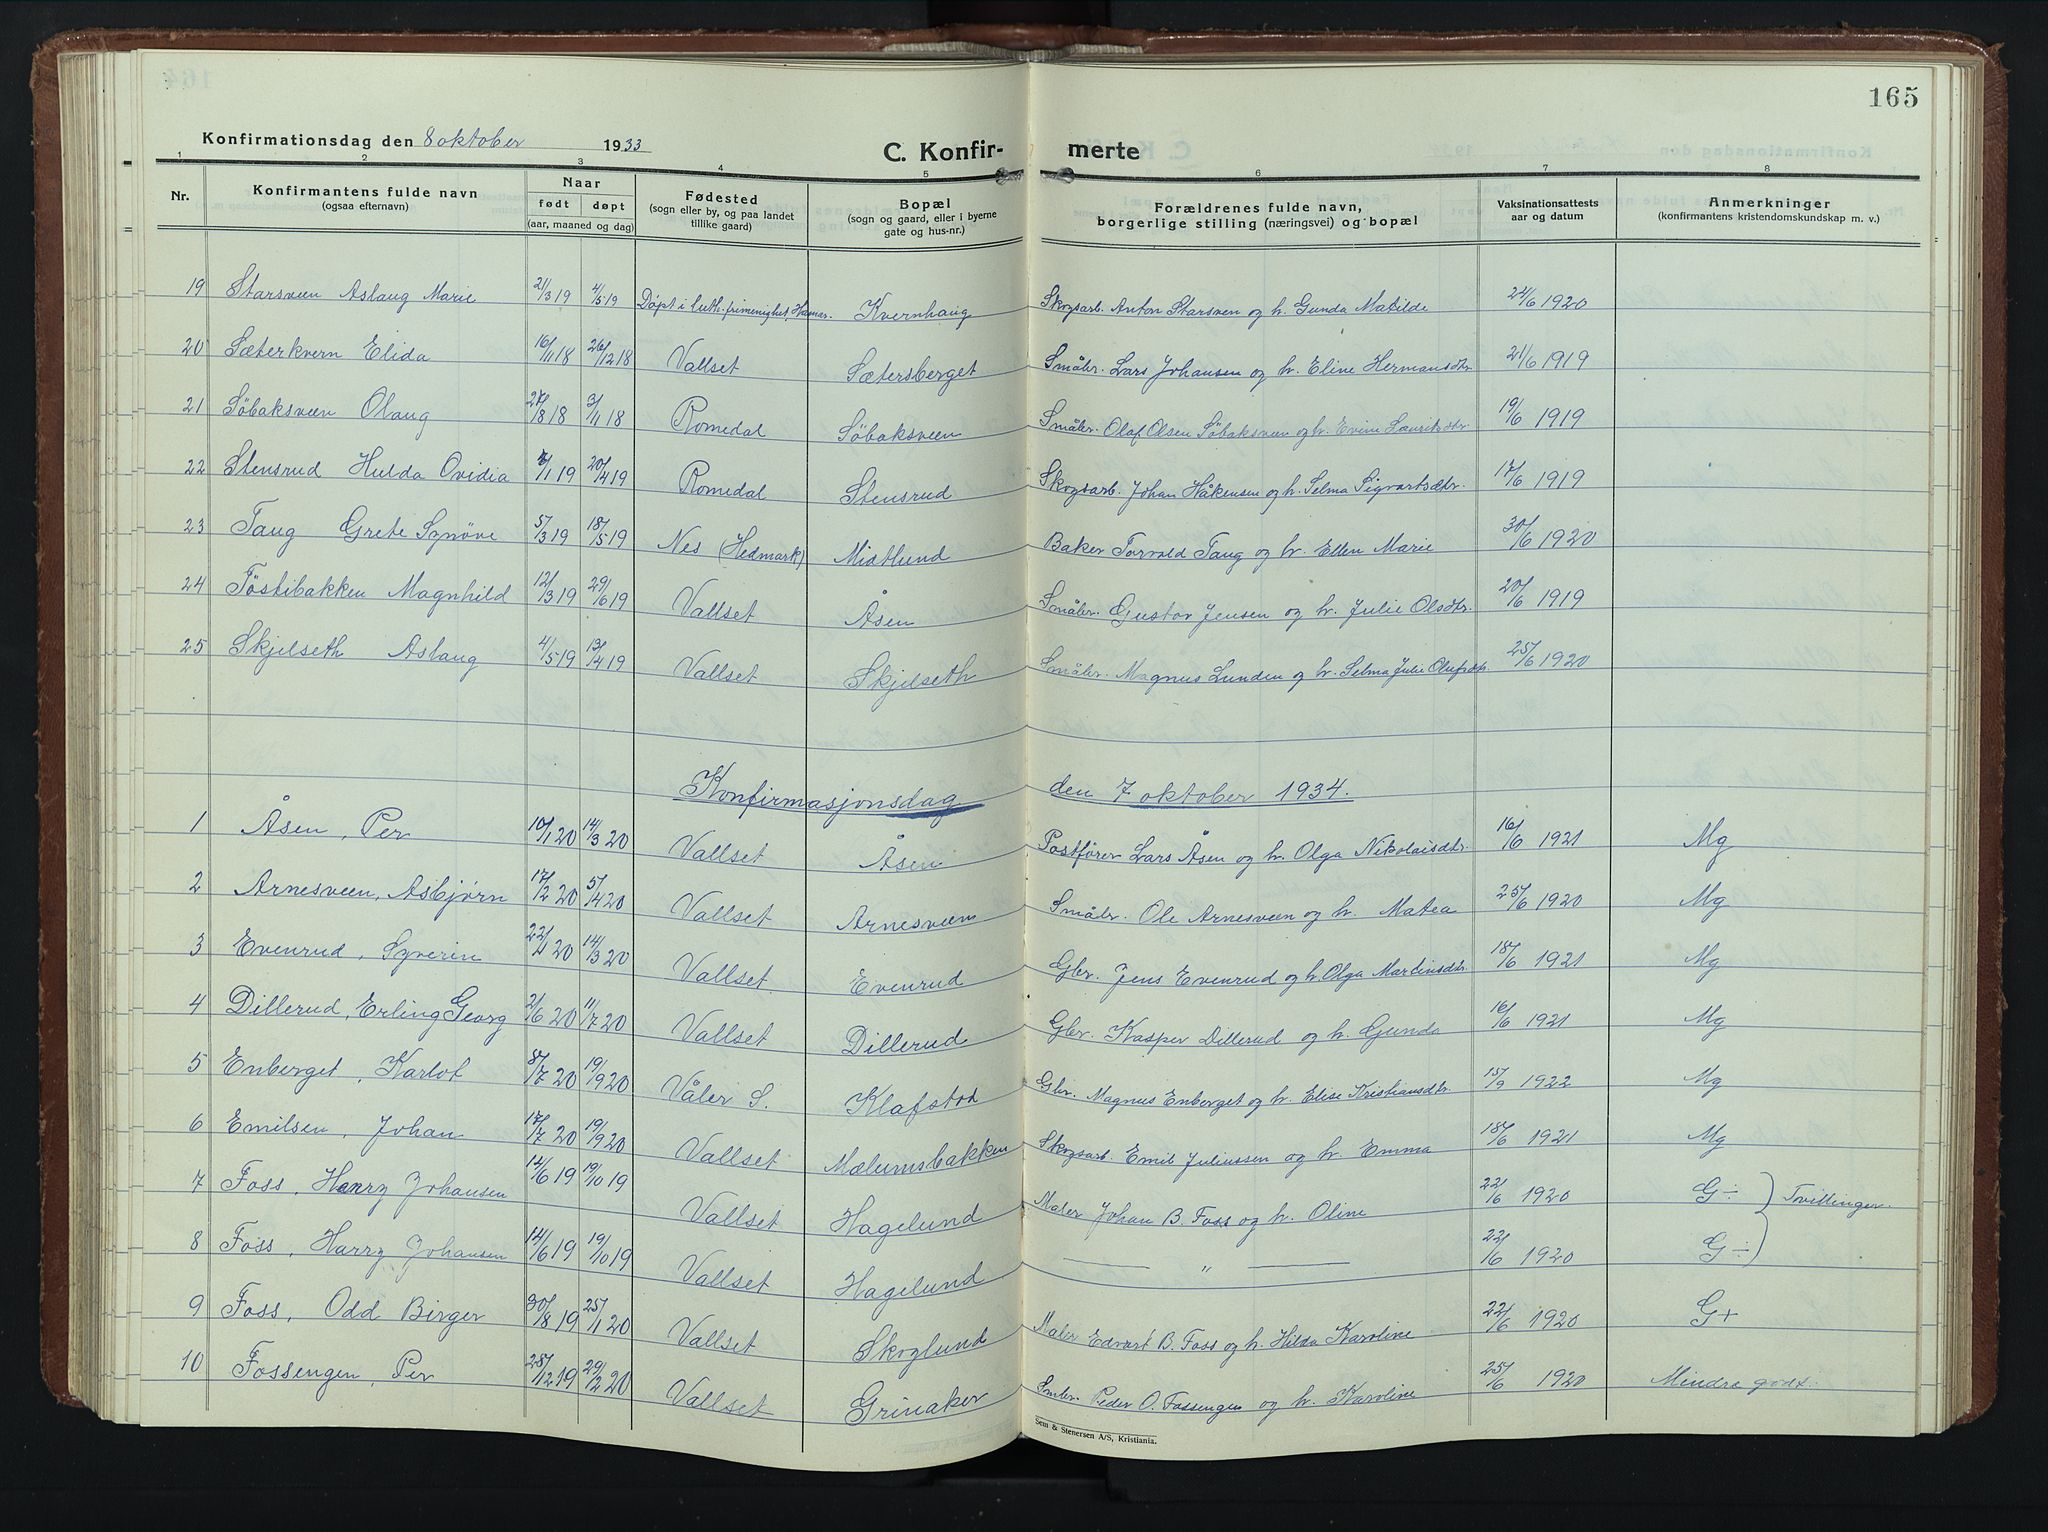 165
Konfirmationsdag den 8 oktober 1933
C. Konfir- merte
1 2 3 4 5 6 7 8
Nr. Konfirmantens fulde navn (ogsaa efternavn) Naar født døpt (aar, maaned og dag) Fødested (sogn eller by, og paa landet tillike gaard) Bopæl (sogn og gaard, eller i byerne gate og hus-nr.) Forældrenes fulde navn, borgerlige stilling (næringsvei) og bopæl Vaksinationsattests aar og datum Anmerkninger (konfirmantens kristendomskundskap m. v.)
19 Starsveen Aslaug Marie 21/3 19 4/5 19 Døpt i luth. frimenighet, Hamar. Kvernhaug Skogsarb. Anton Starsven og h. Gunda Matilde 24/6 1920
20 Sæterkvern Elida 16/11 18 26/12 18 Vallset Sætersberget Småbr. Lars Johansen og h. Eline Hermansdtr. 21/6 1919
21 Søbaksveen Olaug 8 18 3/11 18 Romedal Søbaksveen Småbr. Olaf Olsen Søbaksveen og h. Evine Lauritzdtr. 19/6 1919
22 Stensrud Hulda Ovidia /1 19 20/4 19 Romedal Stensrud Skogsarb. Johan Håkensen og h. Selma Sigvartsdtr. 17/6 1919
23 Taug Grete Synøve 5/3 19 18/5 19 Nes (Hedmark) Midtlund Baker Torvald Taug og h. Ellen Marie 30/6 1920
24 Føstibakken Magnhild 12/3 19 29/6 19 Vallset Åsen Småbr. Gustav Jensen og h. Julie Olsdtr. 20/6 1919
25 Skjelseth Aslaug 4/5 19 13/4 19 Vallset Skjelseth Småbr. Magnus Lunden og h. Selma Julie Olufsdtr. 25/6 1920
Konfirmasjonsdag den 7 oktober 1934.
1 Åsen, Per 10/1 20 14/3 20 Vallset Åsen Postfører Lars Åsen og h. Olga Nikolaisdtr. 16/6 1921 Mg
2 Arnesveen, Asbjørn 17/2 20 5/4 20 Vallset Arnesveen Småbr. Ole Arnesveen og h. Matea 25/6 1920 Mg
3 Evenrud, Syverin 22/1 20 14/3 20 Vallset Evenrud Gbr. Jens Evenrud og h. Olga Martinsdtr. 18/6 1921 Mg
4 Dillerud, Erling Georg 2/6 20 11/7 20 Vallset Dillerud Gbr. Kasper Dillerud og h. Gunda 16/6 1921 Mg
5 Enberget, Karlot 8/7 20 19/9 20 Våler S. Klafstad Gbr. Magnus Enberget og h. Elise Kristiansdtr. 15/9 1922 Mg
6 Emilsen, Johan 17/7 20 19/9 20 Vallset Mælumsbakken Skogsarb. Emil Juliussen og h. Emma 18/6 1921 Mg
7 Foss, Henry Johansen 14/6 19 19/10 19 Vallset Hagelund Maler Johan B. Foss og h. Oline 22/6 1920 G÷ Tvillinger.
8 Foss, Harry Johansen 14/6 19 19/10 19 Vallset Hagelund — " — 22/6 1920 G÷
9 Foss, Odd Birger 30/8 19 25/1 20 Vallset Skoglund Maler Edvart B. Foss og h. Hilda Karoline 22/6 1920 G+
10 Fossengen, Per 28/12 19 29/2 20 Vallset Grinaker Smbr. Peder O. Fossengen og h. Karoline 25/6 1920 Mindre godt.
Sem & Stenersen A/S, Kristiania.